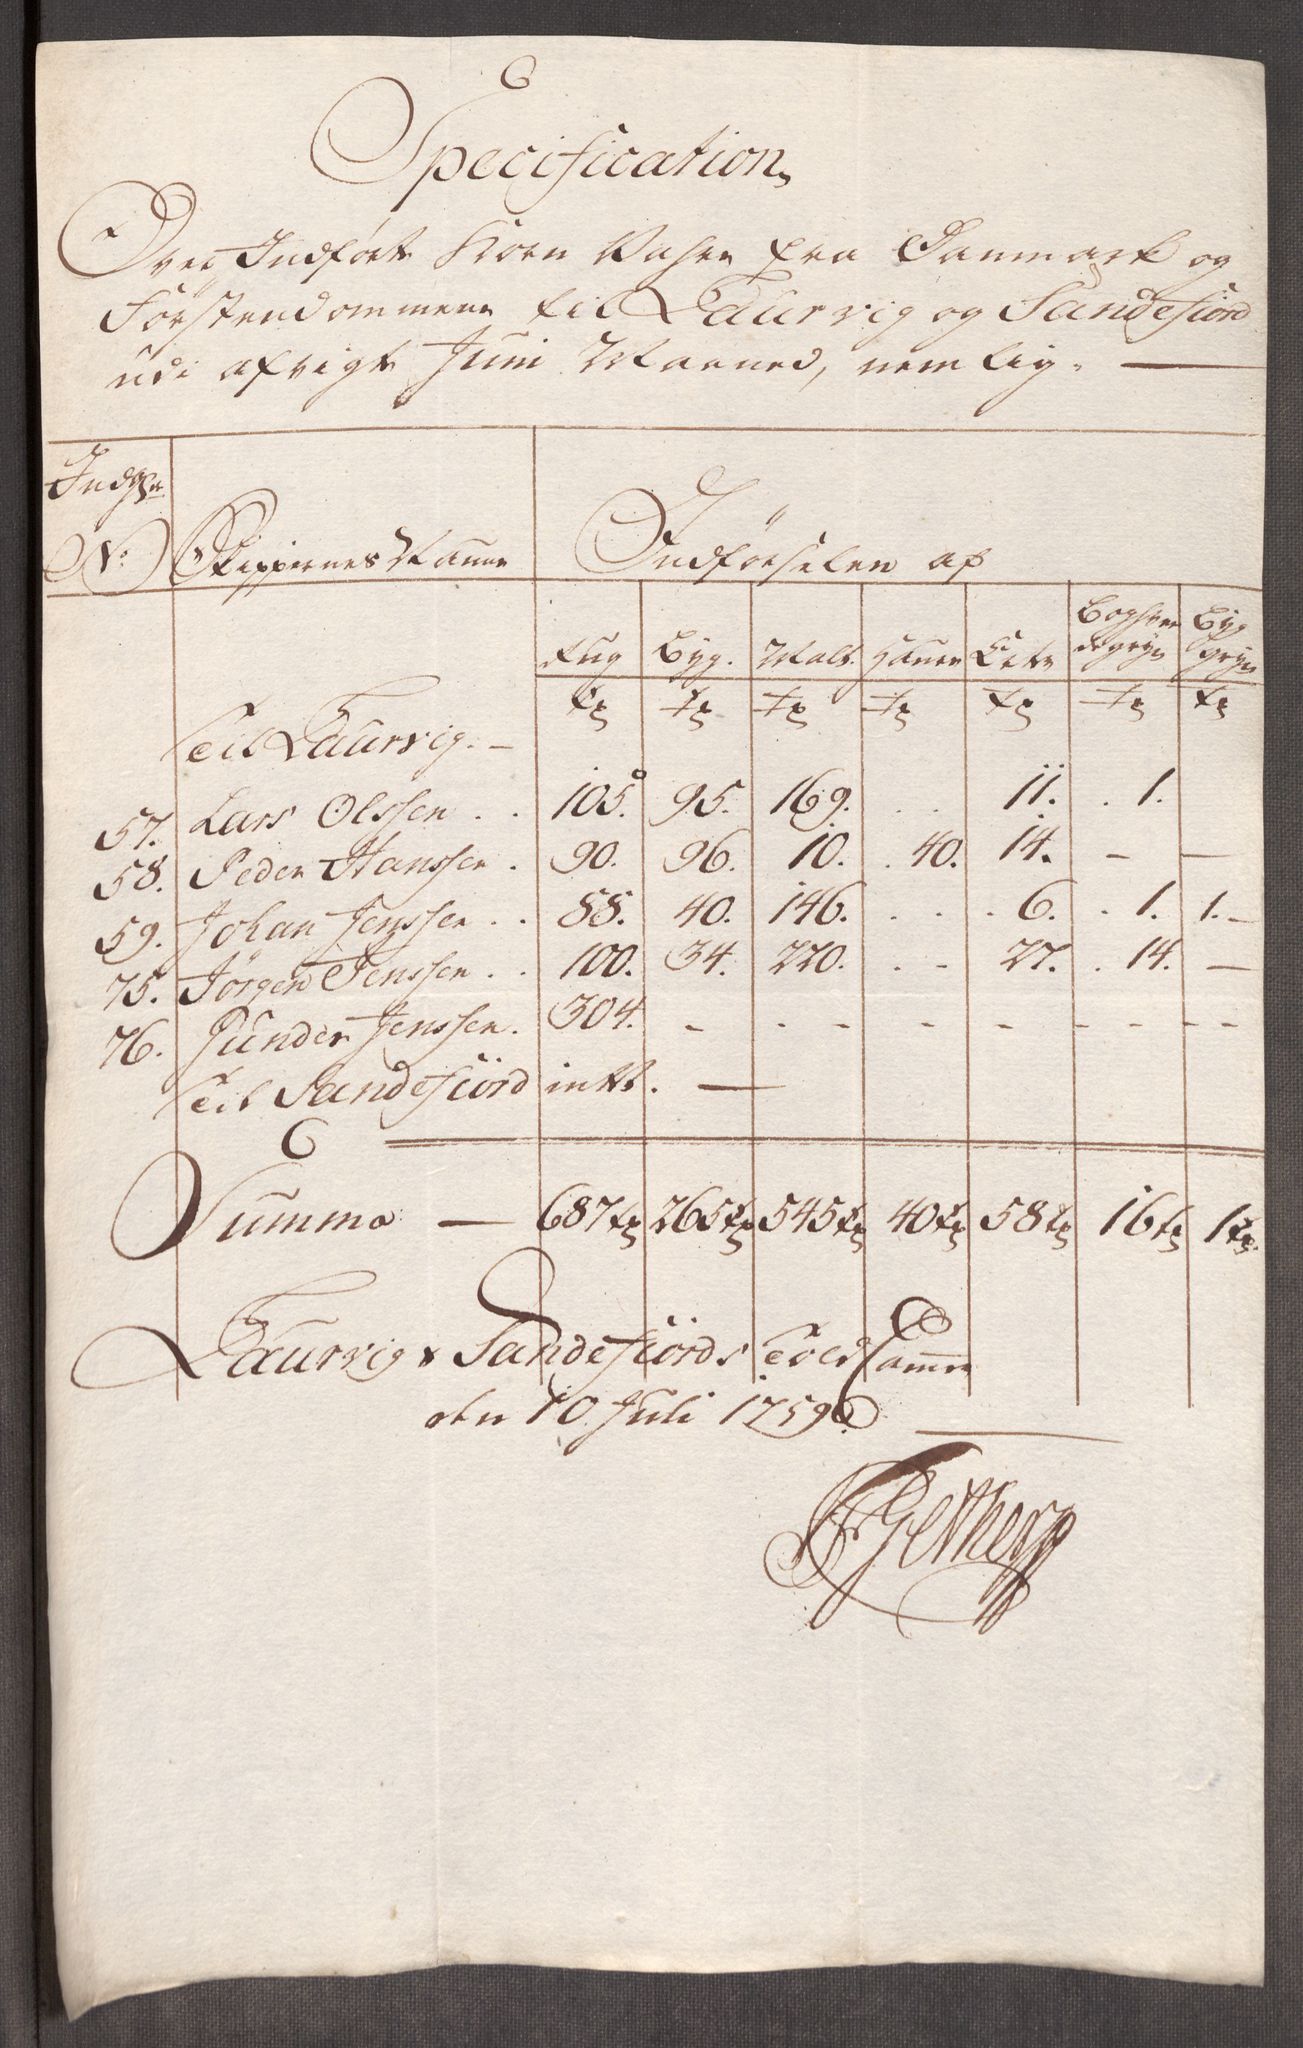 Specification
Over Indført Korn Vahre fra Danmark og
Førstendommene til Laurvig og Sandefiord
udi afvigte Juni Maaned, nemlig. —
Indg:
No: Skippernes Naune Indførselen af
Rug Byg. Malt. Haure Erter Boghvedegryn Byggryn
tr tr tr tr tr tr tr
Til Laurvig. —
57. Lars Olssen . . 105. 95. 169. . . 11. . 1.
58. Peder Hanssen . 90. 96. 10. . 40. 14. — —
59. Johan Jenssen . . 88. 40. 146. . . . 6. . 1. 1. –
75. Jørgen Jenssen . . 100. 34. 220. . . 27. . 14. —
76. Punder Jenssen . 304. – . – – – – – – –
Til Sandefiörd intet. —
Summa — 687 tr 265 tr 545 tr 40 tr 58 tr 16 tr 1 tr.
Laurvig & Sandefiörds Told Camer
den 10 Juli 1759. —